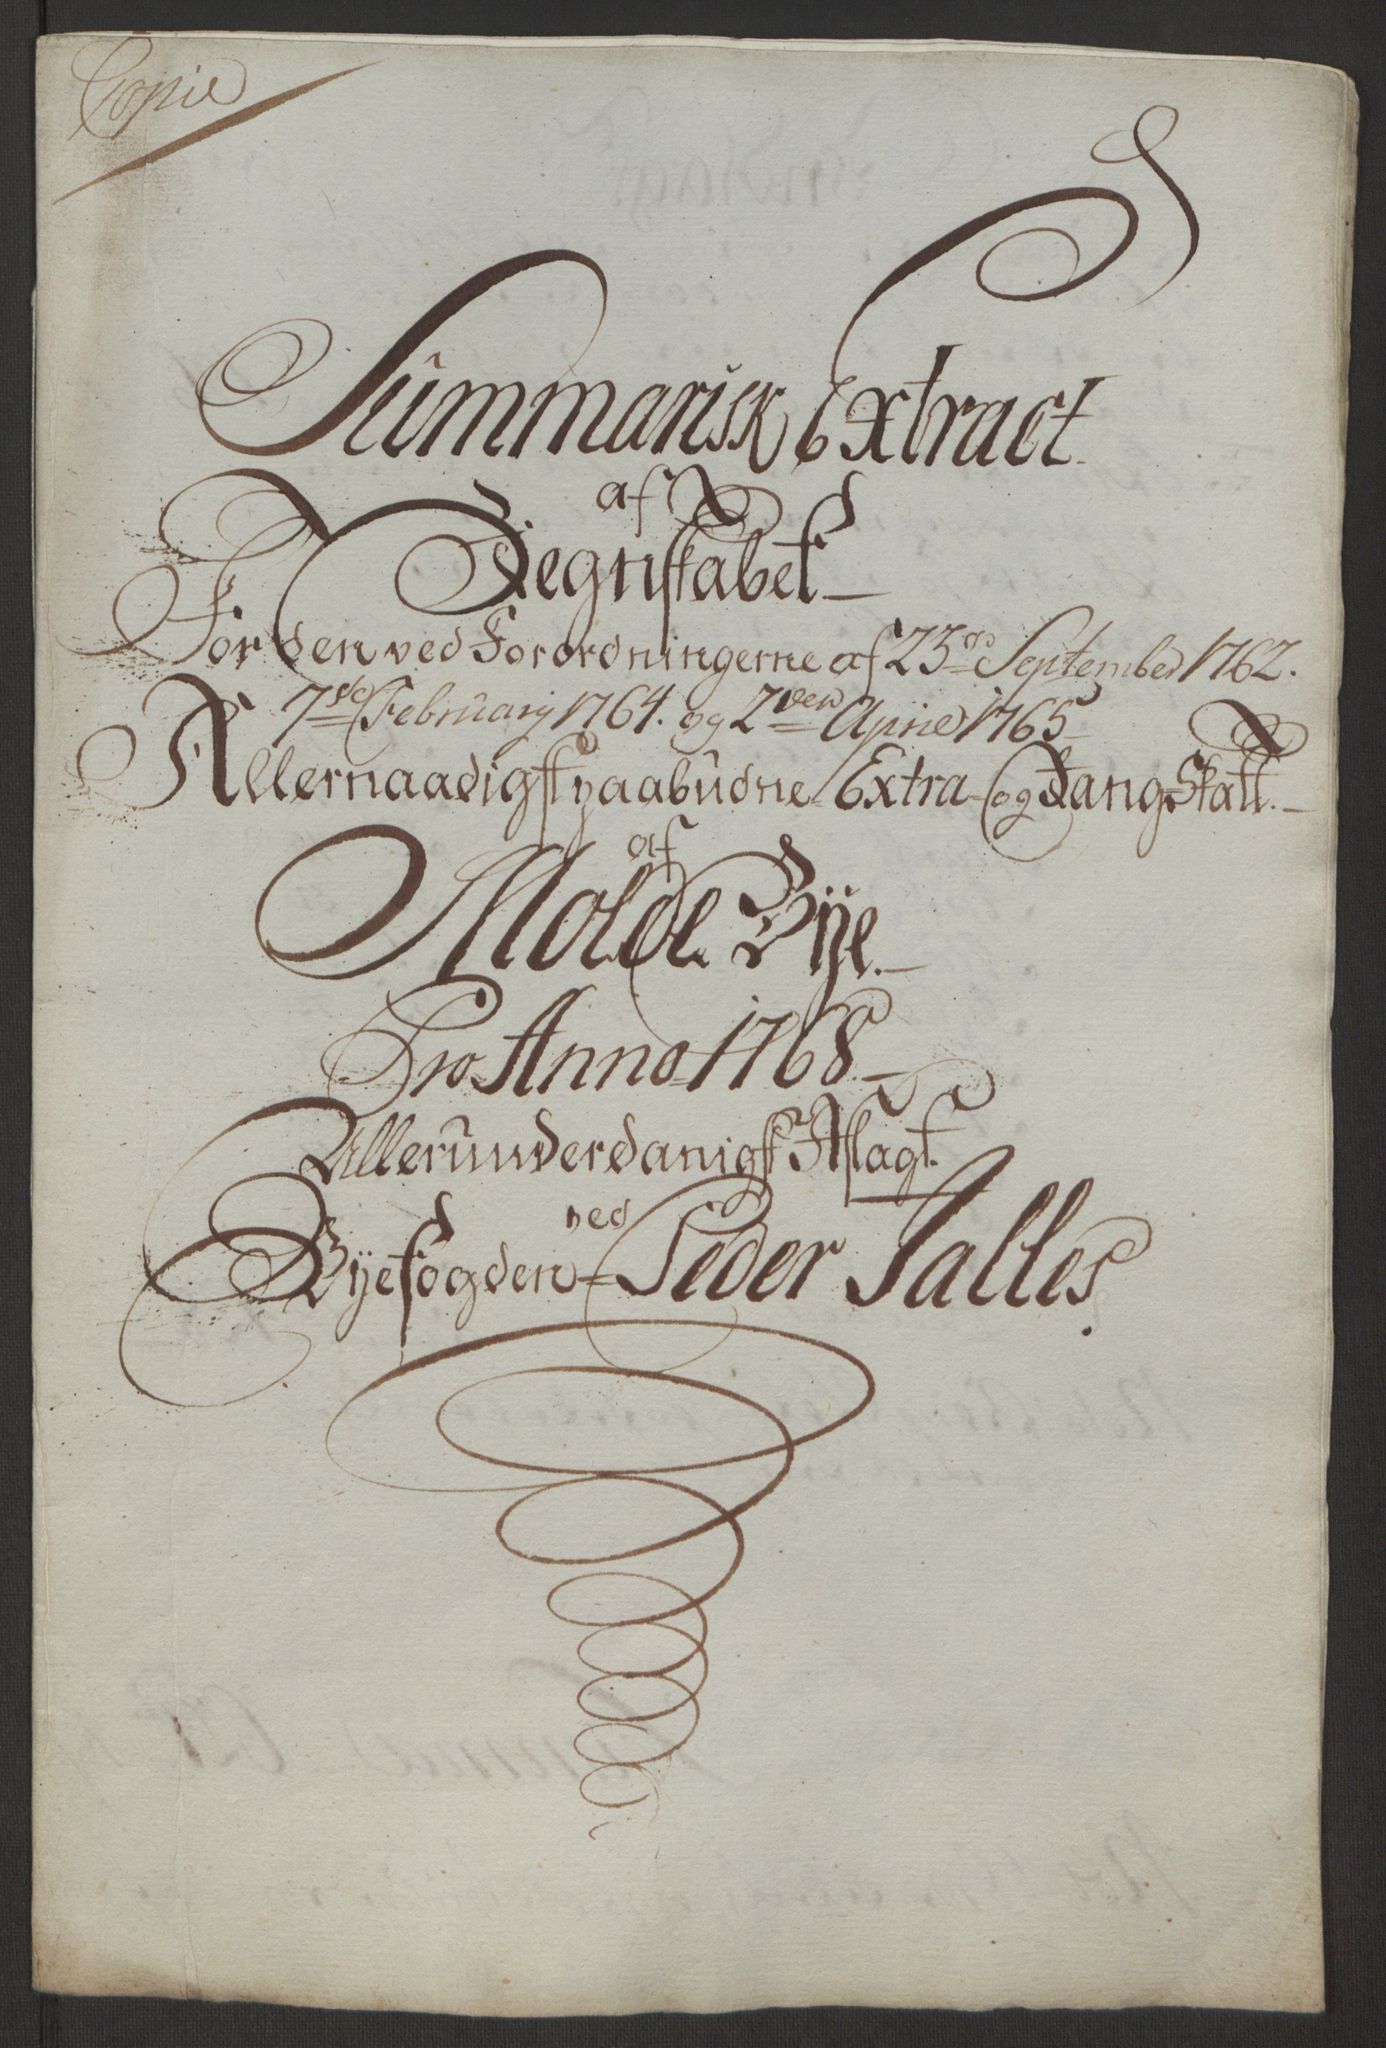 Copie
Summarisk Extract
af
Regnskabet
For den ved Forordningerne af 23de September 1762.
7de February 1764. og 2den April 1765
Allernaadigst paabudne Extra- og Rang-Skatt.
af
Molde Bye.
Pro Anno 1768.
Allerunderdanigst Aflagt
ved
Byefogden Peder Salles